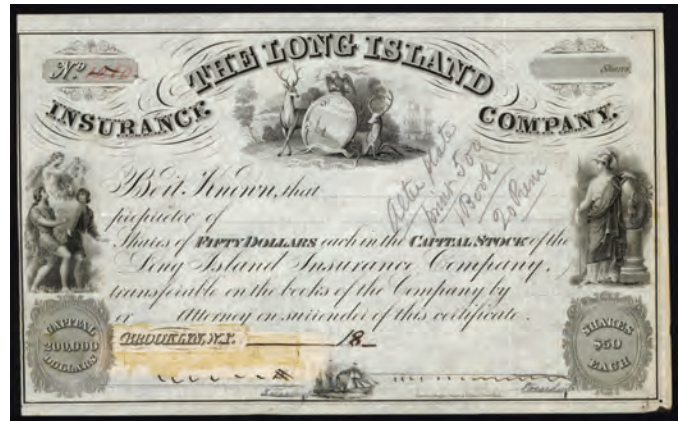 THE LONG ISLAND
INSURANCE COMPANY.
No.
Shares
Be it Known, that
proprietor of
Shares of FIFTY DOLLARS each in the CAPITAL STOCK of the
Long Island Insurance Company,
transferable on the books of the Company by
or Attorney on surrender of this certificate.
BROOKLYN, N.Y. 18
CAPITAL
200,000
DOLLARS
SHARES
$50
EACH
Alter plate
500
1 Book